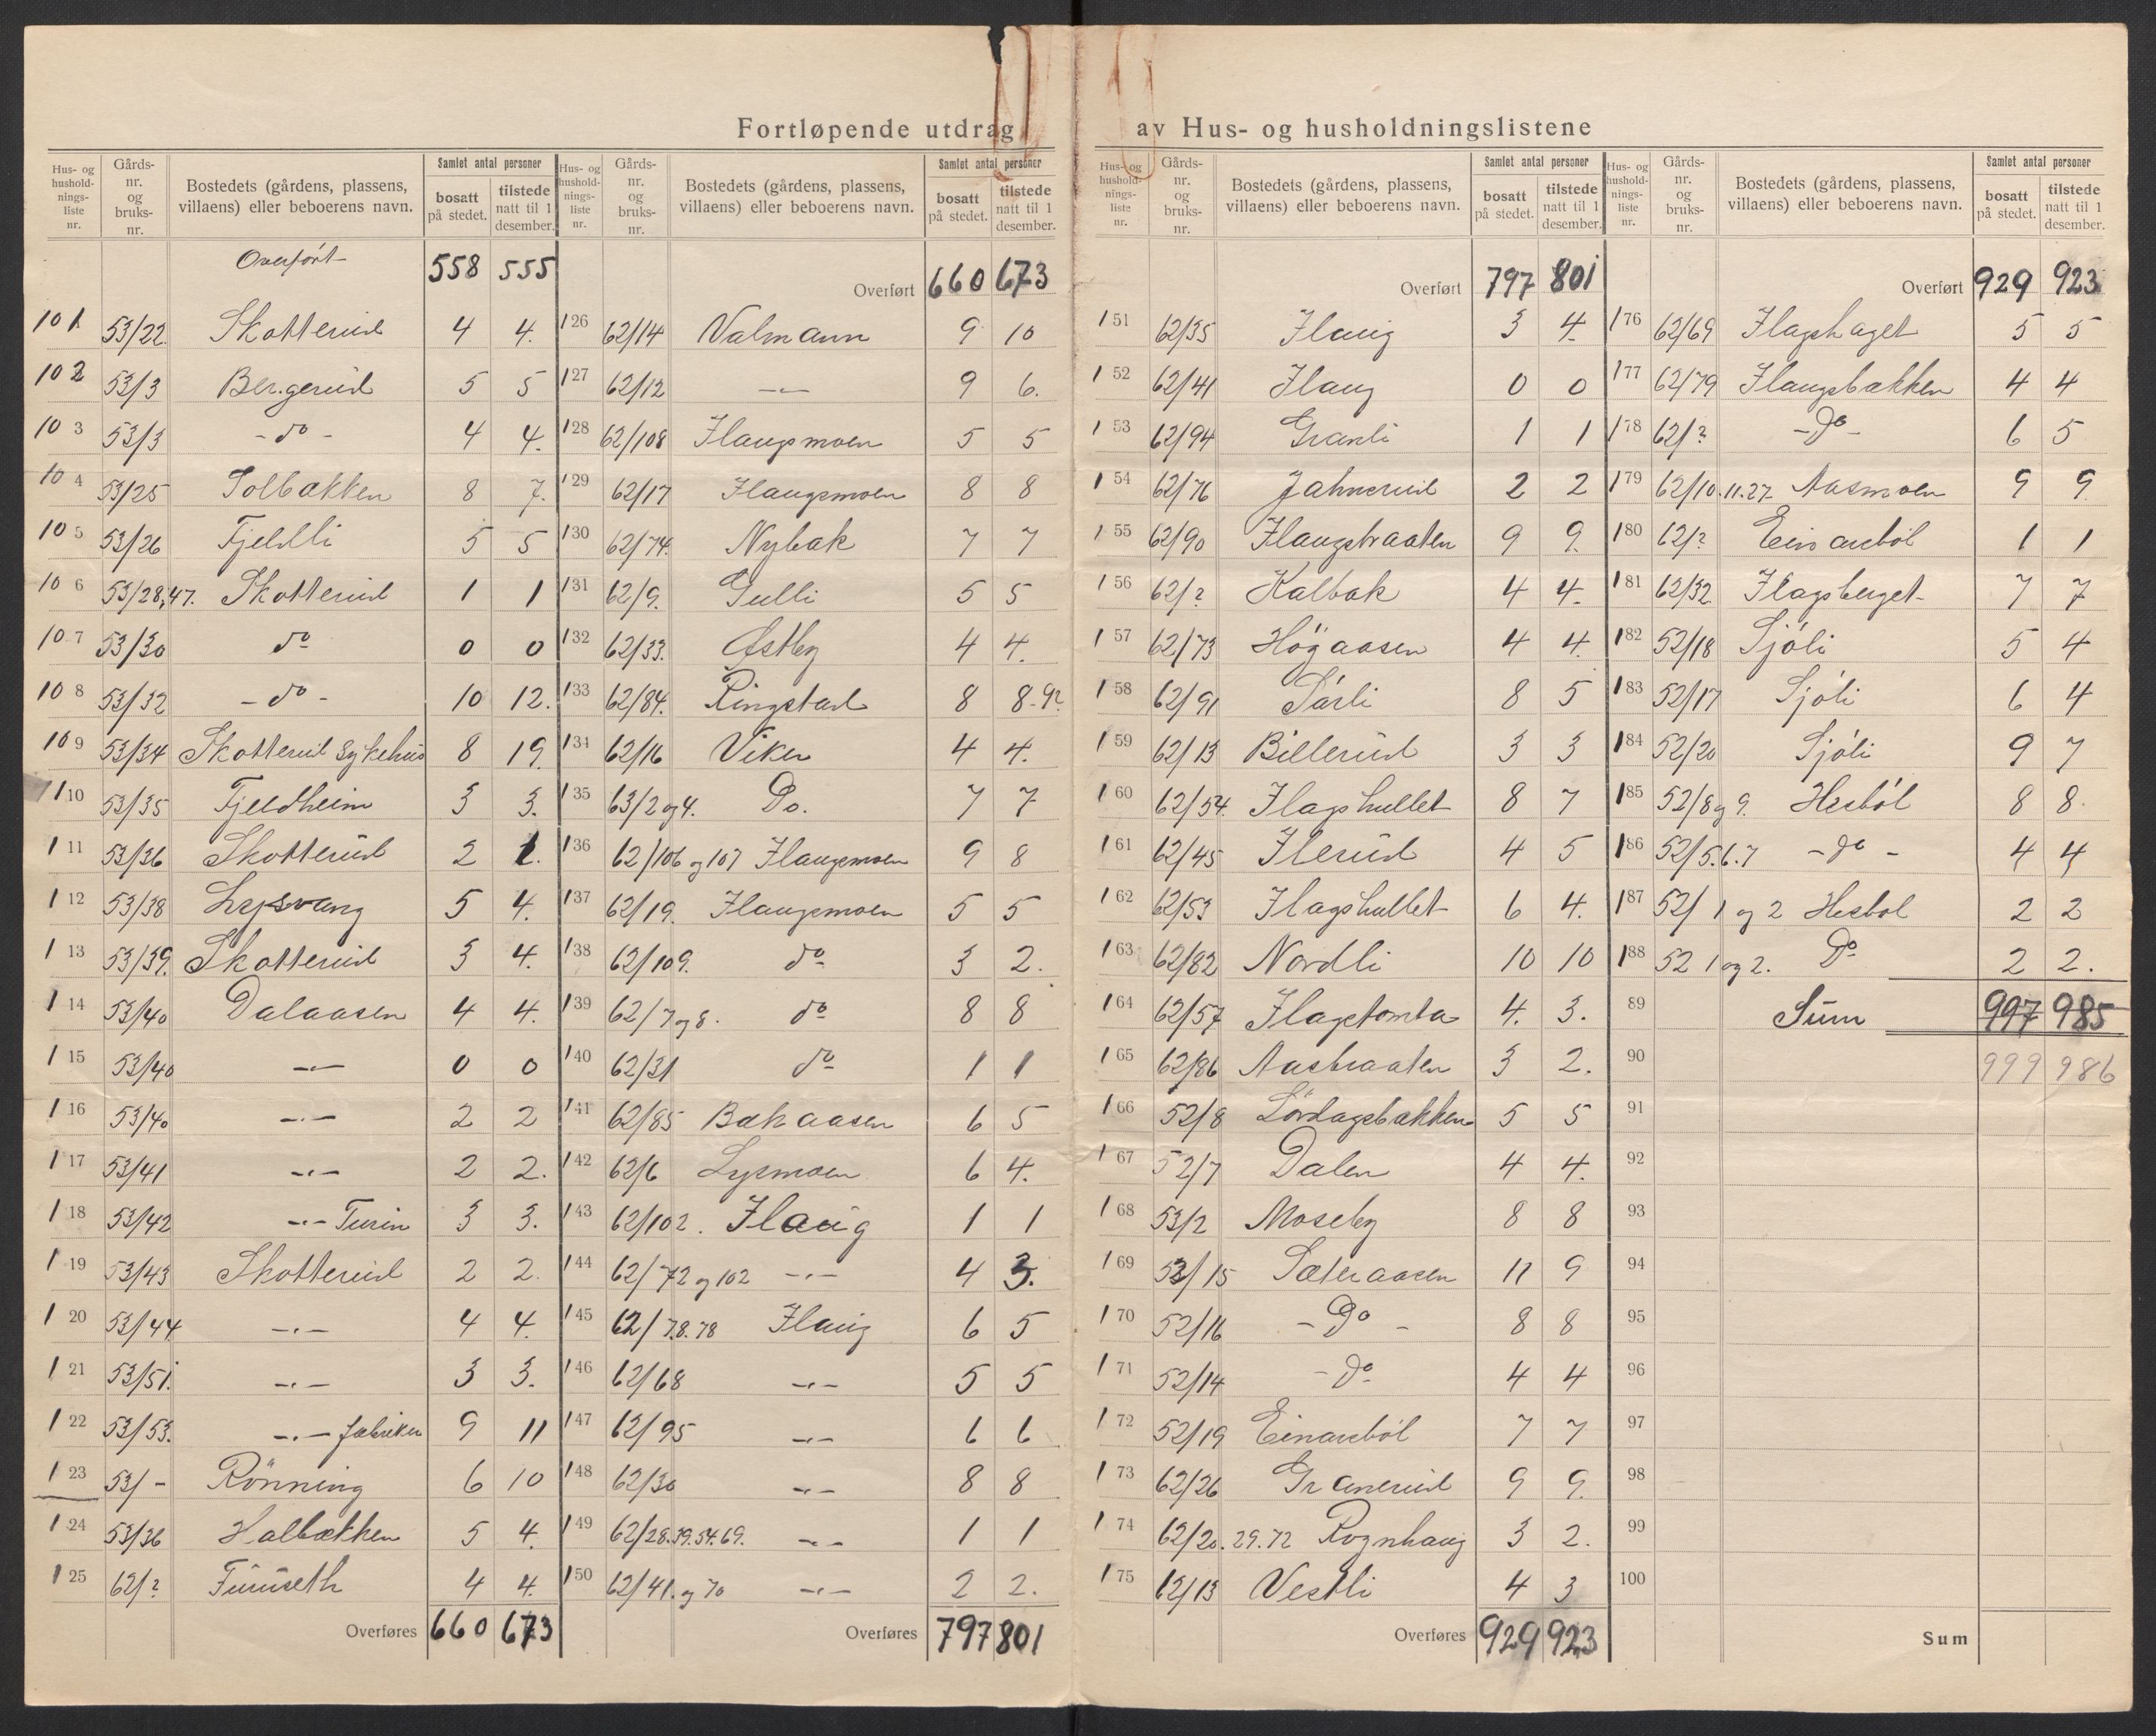 Fortløpende utdrag av Hus- og husholdningslistene
Hus- og hushold-nings-liste nr. | Gårds-nr. og bruks-nr. | Bostedets (gårdens, plassens, villaens) eller beboerens navn. | Samlet antal personer bosatt på stedet. | tilstede natt til 1 desember.
Overført 558 555
101 53/22 Skotterud 4 4.
102 53/3 Bergerud 5 5
103 53/3 - do - 4 4.
104 53/25 Solbakken 8 7.
105 53/26 Fjeldli 5 5
106 53/28,47. Skotterud 1 1
107 53/30 do 0 0
108 53/32 - do - 10 12.
109 53/34 Skotterud Sykehus 8 19.
110 53/35 Fjeldheim 3 3.
111 53/36 Skotterud 2 1.
112 53/38 Lysvang 5 4.
113 53/39. Skotterud 3 4.
114 53/40 Dalaasen 4 4.
115 53/40 -"- 0 0
116 53/40 -"- 2 2
117 53/41 -"- 2 2.
118 53/42 -"- Turin 3 3.
119 53/43 Skotterud 2 2.
120 53/44 -"- 4 4.
121 53/51. -"- 3 3.
122 53/53. -"- fabriker 9 11
123 53/- Rönning 6 10
124 53/36 Halbækken 5 4.
125 62/? Furuseth 4 4.
Overføres 660 673
Hus- og hushold-nings-liste nr. | Gårds-nr. og bruks-nr. | Bostedets (gårdens, plassens, villaens) eller beboerens navn. | Samlet antal personer bosatt på stedet. | tilstede natt til 1 desember.
Overført 660 673
126 62/14 Valmann 9 10
127 62/12 -"- 9 6.
128 62/108 Flaugsmoen 5 5
129 62/17 Flaugsmoen 8 8
130 62/74. Nybak 7 7
131 62/9. Gulli 5 5
132 62/33. Østby 4 4.
133 62/84. Ringstad 8 8-9?
134 62/16 Viker 4 4.
135 63/2 og 4. Do. 7 7
136 62/106 og 107 Flaugsmoen 9 8
137 62/19. Flaugsmoen 5 5
138 62/109. do 3 2.
139 62/7 og 8. do 8 8
140 62/31 do 1 1
141 62/85 Bakaasen 6 5
142 62/6 Lysmoen 6 4.
143 62/102. Flaug 1 1
144 62/72 og 102 -"- 4 3.
145 62/7.8.78 Flaug 6 5
146 62/68 -"- 5 5
147 62/95 -"- 6 6
148 62/30 -"- 8 8
149 62/28.39.54.69. -"- 1 1
150 62/41. og 70 -"- 2 2.
Overføres 797 801
Hus- og hushold-nings-liste nr. | Gårds-nr. og bruks-nr. | Bostedets (gårdens, plassens, villaens) eller beboerens navn. | Samlet antal personer bosatt på stedet. | tilstede natt til 1 desember.
Overført 797 801
151 62/35 Flaug 3 4.
152 62/41 Flaug 0 0
153 62/94 Granli 1 1
154 62/76 Jahnerud 2 2
155 62/90 Flaugbraaten 9 9.
156 62/? Kalbak 4 4.
157 62/73 Högaasen 4 4.
158 62/91 Sørli 8 5
159 62/13 Billerud 3 3
160 62/54. Flagshullet 8 7
161 62/45 Flerud 4 5
162 62/53 Flagshullet 6 4.
163 62/82 Nordli 10 10
164 62/57 Flagstomta 4. 3.
165 62/86 Aasbraaten 3 2.
166 52/8 Lördagsbakken 5 5
167 52/7 Dalen 4 4.
168 53/2 Moseby 8 8
169 52/15 Sæteraasen 11 9
170 52/16 - Do - 8 8
171 52/14 - do 4 4
172 52/19 Einarsböl 7 7
173 62/26 Granerud 9 9.
174 62/20.29.72 Rognhaug 3 2.
175 62/13 Vestli 4 3
Overføres 929 923
Hus- og hushold-nings-liste nr. | Gårds-nr. og bruks-nr. | Bostedets (gårdens, plassens, villaens) eller beboerens navn. | Samlet antal personer bosatt på stedet. | tilstede natt til 1 desember.
Overført 929 923
176 62/69 Flagshaget 5 5
177 62/79 Flaugsbakken 4 4
178 62/? - Do - 6 5
179 62/10.11.27. Aasmoen 9 9
180 62/? Einarsböl 1 1
181 62/32 Flagsberget 7 7
182 52/18 Sjöli 5 4
183 52/17 Sjöli 6 4
184 52/20 Sjöli 9 7
185 52/8 og 9. Hesböl 8 8.
186 52/5.6.7 - do - 4 4
187 52/1 og 2 Hesböl 2 2
188 52 1 og 2. Do 2 2.
89 Sum 997 985
90 999 986
91
92
93
94
95
96
97
98
99
100
Sum